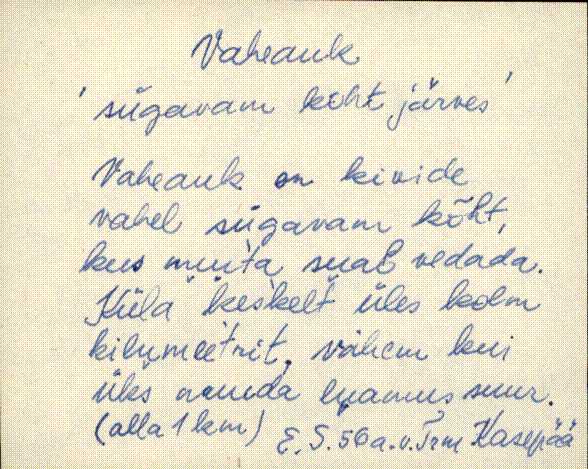 Vaheauk
'sügavam koht järves'
Vaheauk on kivide
vahel sügavam kõht,
kus muita sual vedada.
Küla keskelt üles kolm
kilumeetrit, vähem kui
üks nende suur.
(alla 1 km) E. S. 56 a. v. Trm Kasepää